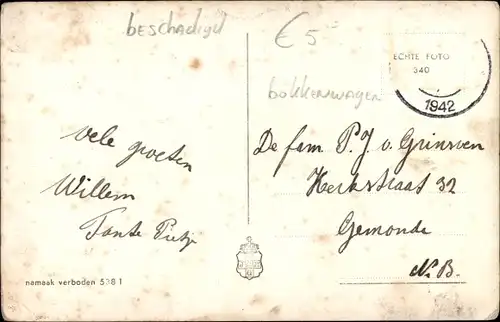 beschadigd
€ 5
ECHTE FOTO
340
1942
bokkenwagen
vele groeten
Willem
Tante Pietje
De fam P. J. v. Grinsven
Kerkstraat 32
Gemonde
N.B.
namaak verboden 5281